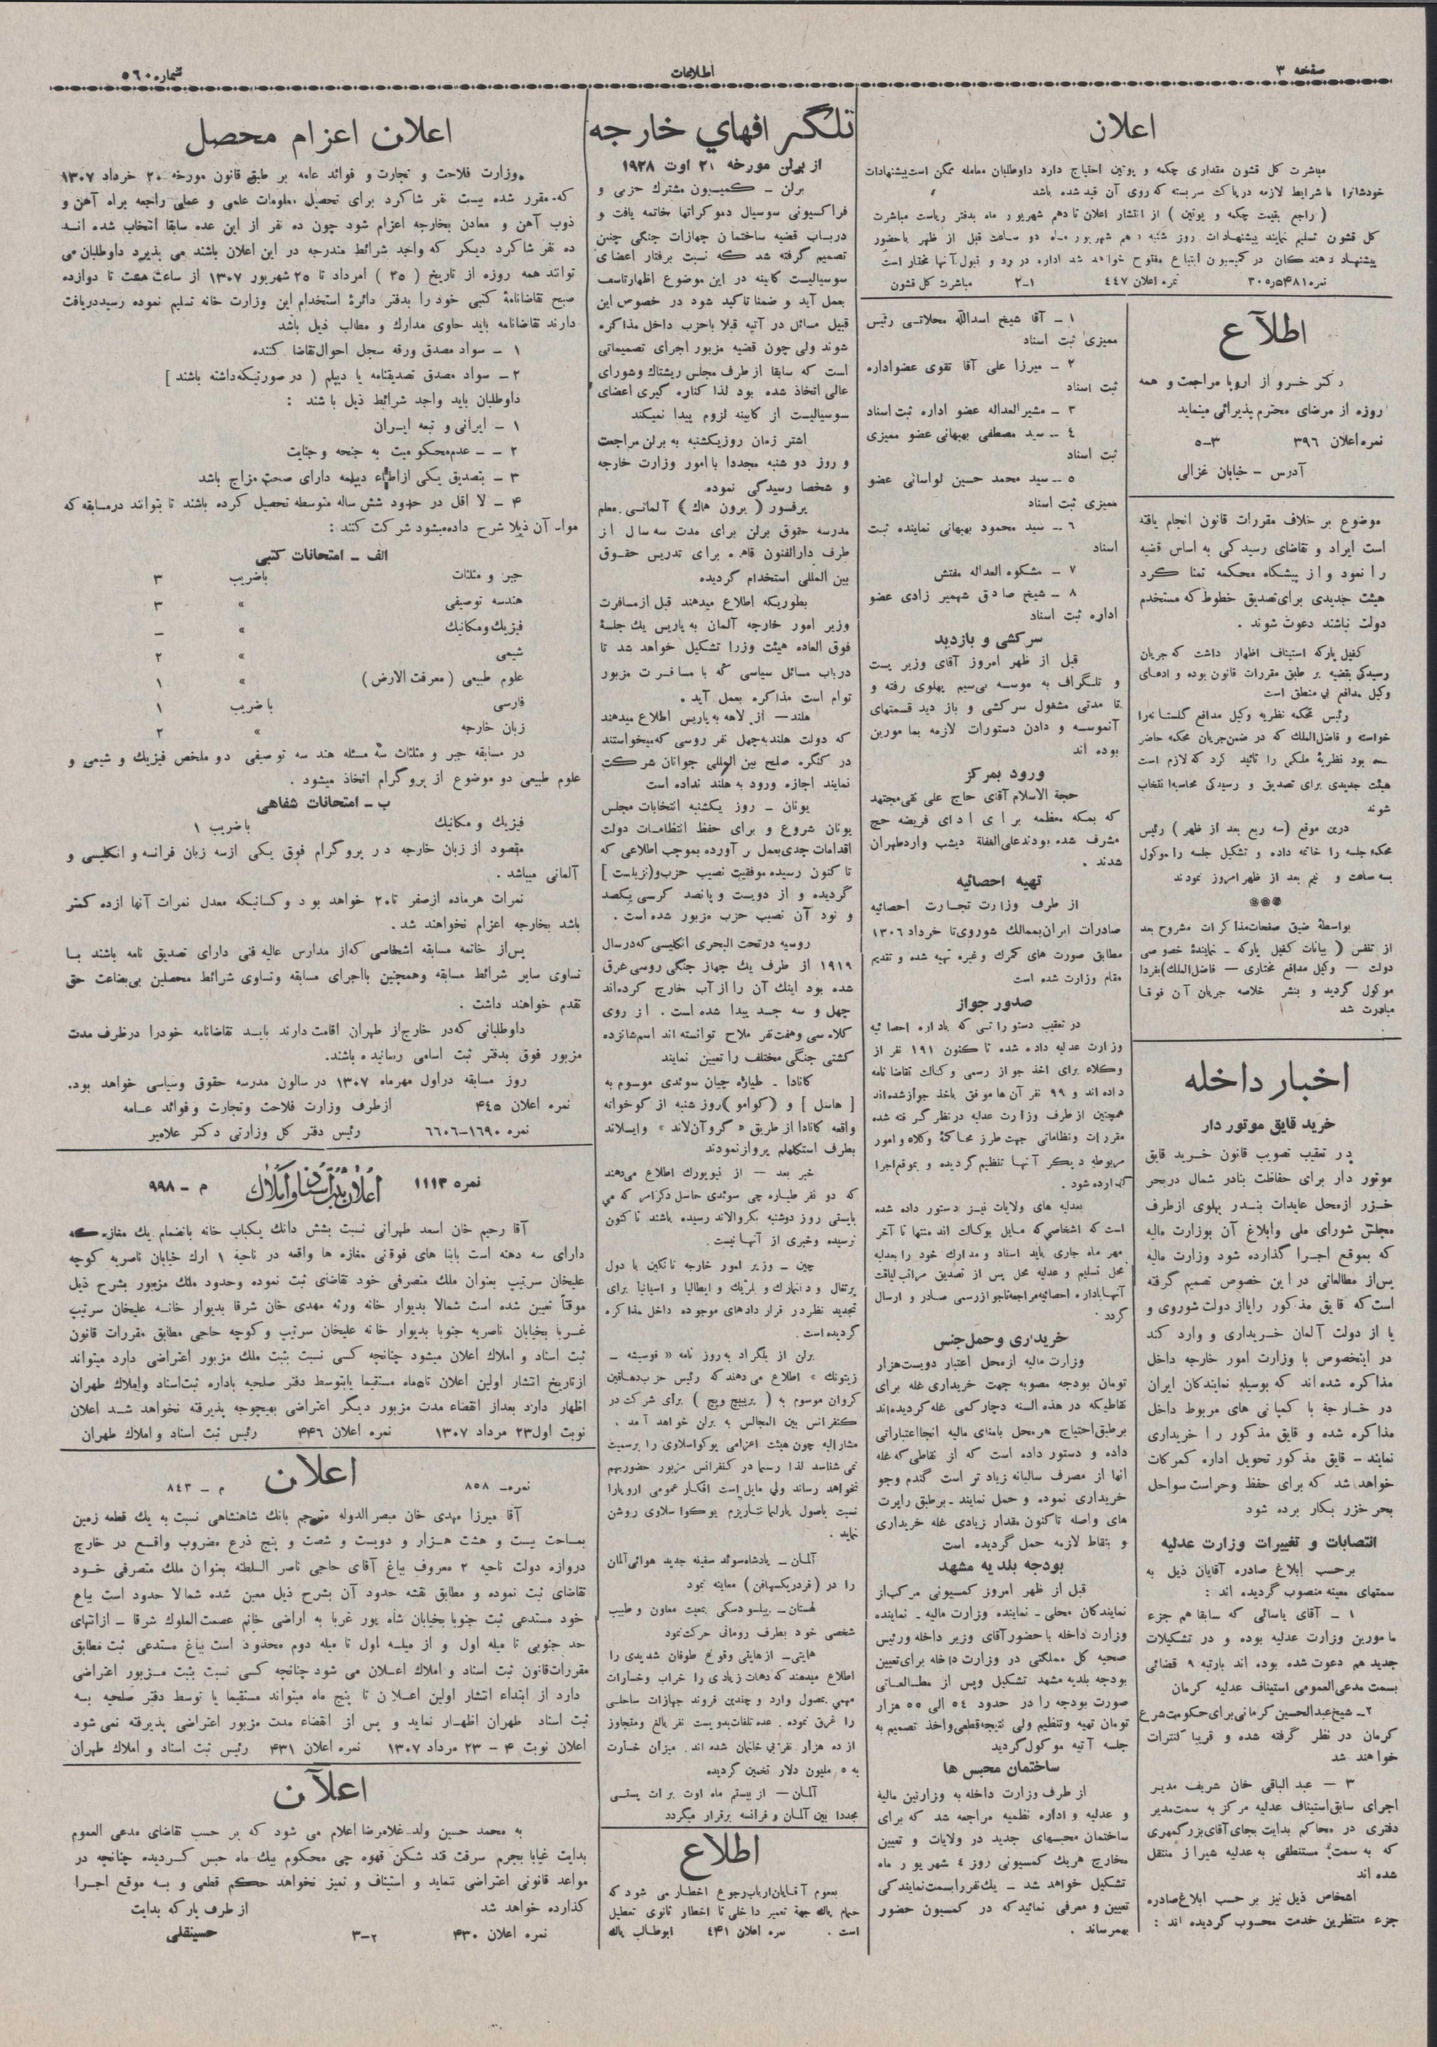 صفحه ۳
اطلاعات
شماره ۵۶۰
اعلان
مباشرت کل قشون مقداری چکمه و پوتین احتیاج دارد داوطلبان معامله ممکن است پیشنهادات
خودشانرا با شرایط لازمه در پاکت سربسته که روی آن قید شده باشد
( راجع بقیمت چکمه و پوتین ) از انتشار اعلان تا دهم شهریور ماه بدفتر ریاست مباشرت
کل قشون تسلیم نمایند پیشنهادات روز شنبه دهم شهریور ماه دو ساعت قبل از ظهر با حضور
پیشنهاد دهندگان در کمیسیون ابتیاع مفتوح خواهد شد اداره در رد و قبول آنها مختار است
نمره اعلان ۴۴۷ ۱-۲ مباشرت کل قشون
اطلاع
دکتر خسرو از اروپا مراجعت و همه
روزه از مرضای محترم پذیرائی مینماید
نمره اعلان ۳۹۶ ۳-۵
آدرس - خیابان غزالی
موضوع بر خلاف مقررات قانون انجام یافته
است ایراد و تقاضای رسیدگی به اساس قضیه
را نمود و از پیشگاه محکمه تمنا کرد
هیئت جدیدی برای تصدیق خطوط که مستخدم
دولت نباشند دعوت شوند .
کفیل پارکه استیناف اظهار داشت که جریان
رسیدگی بقضیه بر طبق مقررات قانون بوده و ادعای
وکیل مدافع بی منطق است
رئیس محکمه نظریه وکیل مدافع گلستانه را
خواسته و فاضل‌الملک که در ضمن جریان محکمه حاضر
بود نظریهٔ ملکی را تائید کرد که لازم است
هیئت جدیدی برای تصدیق و رسیدگی محاسبه انتخاب
شوند
درین موقع (سه ربع بعد از ظهر) رئیس
محکمه جلسه را خاتمه داده و تشکیل جلسه را موکول
بسه ساعت و نیم بعد از ظهر امروز نمودند
***
بواسطهٔ ضیق صفحات مذاکرات مشروح بعد
از تنفس ( بیانات کفیل پارکه - نمایندهٔ خصوصی
دولت - وکیل مدافع مختاری - فاضل‌الملک) بفردا
موکول گردید و بنشر خلاصه جریان آن فوقا
مبادرت شد
اخبار داخله
خرید قایق موتور دار
در تعقیب تصویب قانون خرید قایق
موتور دار برای حفاظت بنادر شمال در بحر
خزر از محل عایدات بندر پهلوی از طرف
مجلس شورای ملی و ابلاغ آن بوزارت مالیه
که بموقع اجرا گذارده شود وزارت مالیه
پس از مطالعاتی در این خصوص تصمیم گرفته
است که قایق مذکور را یا از دولت شوروی و
یا از دولت آلمان خریداری و وارد کند
در اینخصوص با وزارت امور خارجه داخل
مذاکره شده اند که بوسیله نمایندگان ایران
در خارجه با کمپانی های مربوط داخل
مذاکره شده و قایق مذکور را خریداری
نمایند - قایق مذکور تحویل اداره گمرکات
خواهد شد که برای حفظ و حراست سواحل
بحر خزر بکار برده شود
انتصابات و تغییرات وزارت عدلیه
بر حسب ابلاغ صادره آقایان ذیل به
سمتهای معینه منصوب گردیده اند :
۱ - آقای یاسائی که سابقا هم جزء
مامورین وزارت عدلیه بوده و در تشکیلات
جدید هم دعوت شده بوده اند با رتبه ۹ قضائی
بسمت مدعی‌العمومی استیناف عدلیه کرمان
۲- شیخ عبدالحسین کرمانی برای حکومت شرع
کرمان در نظر گرفته شده و قریبا کنترات
خواهند شد
۳ - عبد الباقی خان شریف مدیر
اجرای سابق استیناف عدلیه مرکز به سمت مدیر
دفتری در محاکم بدایت بجای آقای بزرگمهری
که به سمت مستنطقی به عدلیه شیراز منتقل
شده اند
اشخاص ذیل نیز بر حسب ابلاغ صادره
جزء منتظرین خدمت محسوب گردیده اند :
۱ - آقا شیخ اسدالله محلاتی رئیس
ممیزی ثبت اسناد
۲ - میرزا علی آقا تقوی عضو اداره
ثبت اسناد
۳ - مشیرالعداله عضو اداره ثبت اسناد
۴ - سید مصطفی بهبهانی عضو ممیزی
ثبت اسناد
۵ - سید محمد حسین لواسانی عضو
ممیزی ثبت اسناد
۶ - سید محمود بهبهانی نماینده ثبت
اسناد
۷ - مشکوه العداله مفتش
۸ - شیخ صادق شهمیرزادی عضو
اداره ثبت اسناد
سرکشی و بازدید
قبل از ظهر امروز آقای وزیر پست
و تلگراف به موسسه بی‌سیم پهلوی رفته و
تا مدتی مشغول سرکشی و بازدید قسمتهای
آنموسسه و دادن دستورات لازمه بمامورین
بوده اند
ورود بمرکز
حجة الاسلام آقای حاج علی نقی مجتهد
که بمکه معظمه برای ادای فریضه حج
مشرف شده بودند علی‌الغفلة دیشب وارد طهران
شدند .
تهیه احصائیه
از طرف وزارت تجارت احصائیه
صادرات ایران بممالک شوروی تا خرداد ۱۳۰۶
مطابق صورت های گمرک و غیره تهیه شده و تقدیم
مقام وزارت شده است
صدور جواز
در تعقیب دستوراتی که باداره احصائیه
وزارت عدلیه داده شده تا کنون ۱۹۱ نفر از
وکلاء برای اخذ جواز رسمی وکالت تقاضا نامه
داده اند و ۹۹ نفر آن ها موفق باخذ جواز شده اند
همچنین از طرف وزارت عدلیه در نظر گرفته شده
مقررات و نظاماتی جهت طرز محاکمهٔ وکلاء و امور
مربوطه دیگر آنها تنظیم گردیده و بموقع اجرا
گذارده شود .
بعدلیه های ولایات نیز دستور داده شده
است که اشخاصی که مایل بوکالت اند منتها تا آخر
مهر ماه جاری باید اسناد و مدارک خود را بعدلیه
محل تسلیم و عدلیه محل پس از تصدیق مراتب لیاقت
آنها باداره احصائیه مراجعه تا جواز رسمی صادر و ارسال
گردد
خریداری و حمل جنس
وزارت مالیه از محل اعتبار دویست هزار
تومان بودجه مصوبه جهت خریداری غله برای
نقاطیکه در هذه السنه دچار کمی غله گردیده اند
بر طبق احتیاج هر محل بامنای مالیه آنجا اعتباراتی
داده و دستور داده است که از نقاطی که غله
آنها از مصرف سالیانه زیاد تر است گندم و جو
خریداری نموده و حمل نمایند - بر طبق راپرت
های واصله تا کنون مقدار زیادی غله خریداری
و بنقاط لازمه حمل گردیده است
بودجه بلدیه مشهد
قبل از ظهر امروز کمسیونی مرکب از
نمایندگان محلی - نماینده وزارت مالیه - نماینده
وزارت داخله با حضور آقای وزیر داخله و رئیس
صحیه کل مملکتی در وزارت داخله برای تعیین
بودجه بلدیه مشهد تشکیل و پس از مطالعاتی
صورت بودجه را در حدود ۵۴ الی ۵۵ هزار
تومان تهیه و تنظیم ولی نتیجه قطعی و اخذ تصمیم به
جلسه آتیه موکول گردید
ساختمان محبس ها
از طرف وزارت داخله به وزارتین مالیه
و عدلیه و اداره نظمیه مراجعه شد که برای
ساختمان محبسهای جدید در ولایات و تعیین
مخارج هر یک کمسیونی روز ۴ شهریور ماه
تشکیل خواهد شد - یک نفر را بسمت نمایندگی
تعیین و معرفی نمائید که در کمسیون حضور
بهمرساند .
تلگرافهای خارجه
از برلن مورخه ۲۱ اوت ۱۹۲۸
برلن - کمیسیون مشترک حزبی و
فراکسیونی سوسیال دموکراتها خاتمه یافت و
درباب قضیه ساختمان جهازات جنگی چنین
تصمیم گرفته شد که نسبت برفتار اعضای
سوسیالیست کابینه در این موضوع اظهار تاسف
بعمل آید و ضمنا تاکید شود در خصوص این
قبیل مسائل در آتیه قبلا با حزب داخل مذاکره
شوند ولی چون قضیه مزبور اجرای تصمیماتی
است که سابقا از طرف مجلس ریشتاک و شورای
عالی اتخاذ شده بود لذا کناره گیری اعضای
سوسیالیست از کابینه لزوم پیدا نمیکند
اشتر زمان روز یکشنبه به برلن مراجعت
و روز دو شنبه مجددا با امور وزارت خارجه
و شخصا رسیدگی نموده
پرفسور ( برون هاک ) آلمانی معلم
مدرسه حقوق برلن برای مدت سه سال از
طرف دارالفنون قاهره برای تدریس حقوق
بین المللی استخدام گردیده
بطوریکه اطلاع میدهند قبل از مسافرت
وزیر امور خارجه آلمان به پاریس یک جلسهٔ
فوق العاده هیئت وزرا تشکیل خواهد شد تا
درباب مسائل سیاسی که با مسافرت مزبور
توام است مذاکره بعمل آید .
هلند - از لاهه به پاریس اطلاع میدهند
که دولت هلند به چهل نفر روسی که میخواستند
در کنگره صلح بین المللی جوانان شرکت
نمایند اجازه ورود به هلند نداده است
یونان - روز یکشنبه انتخابات مجلس
یونان شروع و برای حفظ انتظامات دولت
اقدامات جدی بعمل بر آورده بموجب اطلاعی که
تا کنون رسیده موفقیت نصیب حزب
گردیده و از دویست و پانصد کرسی یکصد
و نود آن نصیب حزب مزبور شده است .
روسیه در تحت البحری انگلیسی که در سال
۱۹۱۹ از طرف یک جهاز جنگی روسی غرق
شده بود اینک آن را از آب خارج کرده اند
چهل و سه جسد پیدا شده است . از روی
کلاه سی و هفت نفر ملاح توانسته اند اسم شانزده
کشتی جنگی مختلف را تعیین نمایند
کانادا - طیاره چیان سوئدی موسوم به
[ هاسل ] و (کوامو) روز شنبه از کوخوانه
واقعه کانادا از طریق « گروآن‌لاند » و ایسلاند
بطرف استکلهلم پرواز نمودند
خبر بعد - از نیویورک اطلاع میدهند
که دو نفر طیاره چی سوئدی هاسل و کرامر که می
بایستی روز دوشنبه بگروالاند رسیده باشند تا کنون
نرسیده و خبری از آنها نیست .
چین - وزیر امور خارجه نانکین با دول
پرتقال و دانمارک و بلژیک و ایطالیا و اسپانیا برای
تجدید نظر در قرار دادهای موجوده داخل مذاکره
گردیده است .
برلن از بلگراد به روز نامه « فوسیشه -
زیتونک » اطلاع میدهند که رئیس حزب دهاقین
کروان موسوم به ( پریبیچ ویچ ) برای شرکت در
کنفرانس بین المجالس به برلن خواهد آمد .
مشارالیه چون هیئت اعزامی یوگواسلاوی را برسمیت
نمی شناسد لذا رسما در کنفرانس مزبور حضور بهم
نخواهد رساند ولی مایل است افکار عمومی اروپا را
نسبت باصول پارلمانتاریزم یوگوا سلاوی روشن
نماید .
آلمان - پادشاه سوئد سفینه جدید هوائی آلمان
را در (فردریکسهافن) معاینه نمود
لهستان - پیلسودسکی بمعیت معاون و طبیب
شخصی خود بطرف رومانی حرکت نمود
هایتی - از هایتی وقوع طوفان شدیدی را
اطلاع میدهند که دهات زیادی را خراب و خسارات
مهمی بمحصول وارد و چندین فروند جهازات ساحلی
را غرق نموده . عده تلفات بدویست نفر بالغ و متجاوز
از ده هزار نفر بی خانمان شده اند . میزان خسارت
به ۵ ملیون دلار تخمین گردیده
آلمان - از بیستم ماه اوت برات پستی
مجددا بین آلمان و فرانسه برقرار میگردد
اطلاع
بعموم آقایان ارباب رجوع اخطار می شود که
حمام پاک جهة تعمیر داخلی تا اخطار ثانوی تعطیل
است . نمره اعلان ۴۴۱ ابوطالب پاک
اعلان اعزام محصل
وزارت فلاحت و تجارت و فوائد عامه بر طبق قانون مورخه ۲۰ خرداد ۱۳۰۷
که مقرر شده بیست نفر شاگرد برای تحصیل معلومات علمی و عملی راجعه براه آهن و
ذوب آهن و معادن بخارجه اعزام شود چون ده نفر از این عده سابقا انتخاب شده اند
ده نفر شاگرد دیگر که واجد شرائط مندرجه در این اعلان باشند می پذیرد داوطلبان می
توانند همه روزه از تاریخ ( ۲۵ ) امرداد تا ۲۵ شهریور ۱۳۰۷ از ساعت هشت تا دوازده
صبح تقاضانامهٔ کتبی خود را بدفتر دائرهٔ استخدام این وزارت خانه تسلیم نموده رسید دریافت
دارند تقاضانامه باید حاوی مدارک و مطالب ذیل باشد
۱ - سواد مصدق ورقه سجل احوال تقاضا کننده
۲- سواد مصدق تصدیقنامه یا دیپلم ( در صورتیکه داشته باشند ]
داوطلبان باید واجد شرائط ذیل باشند :
۱ - ایرانی و تبعه ایران
۲ - عدم محکومیت به جنحه و جنایت
۳ - بتصدیق یکی از اطباء دیپلمه دارای صحت مزاج باشد
۴ - لا اقل در حدود شش ساله متوسطه تحصیل کرده باشند تا بتوانند در مسابقه که
مواد آن ذیلا شرح داده میشود شرکت کنند :
الف - امتحانات کتبی
جبر و مثلثات باضریب ۳
هندسه توصیفی » ۳
فیزیک و مکانیک » -
شیمی » ۲
علوم طبیعی ( معرفت الارض ) » ۱
فارسی باضریب ۱
زبان خارجه » ۲
در مسابقه جبر و مثلثات سه مسئله هندسه توصیفی دو ملخص فیزیک و شیمی و
علوم طبیعی دو موضوع از پروگرام اتخاذ میشود .
ب - امتحانات شفاهی
فیزیک و مکانیک باضریب ۱
مقصود از زبان خارجه در پروگرام فوق یکی از سه زبان فرانسه و انگلیسی و
آلمانی میباشد .
نمرات هر ماده از صفر تا ۲۰ خواهد بود و کسانیکه معدل نمرات آنها از ده کمتر
باشد بخارجه اعزام نخواهند شد .
پس از خاتمه مسابقه اشخاصی که از مدارس عالیه فنی دارای تصدیق نامه باشند با
تساوی سایر شرائط مسابقه و همچنین با اجرای مسابقه و تساوی شرائط محصلین بی‌بضاعت حق
تقدم خواهند داشت .
داوطلبانی که در خارج از طهران اقامت دارند باید تقاضانامه خود را در ظرف مدت
مزبور فوق بدفتر ثبت اسامی رسانیده باشند.
روز مسابقه در اول مهر ماه ۱۳۰۷ در سالون مدرسه حقوق و سیاسی خواهد بود.
نمره اعلان ۴۴۵ از طرف وزارت فلاحت و تجارت و فوائد عامه
نمره ۱۶۹۰-۶۶۰۶ رئیس دفتر کل وزارتی دکتر علامیر
نمره ۱۱۱۳ اعلان ثبت اسناد و املاک م - ۹۹۸
آقا رحیم خان اسعد طهرانی نسبت بشش دانگ یکباب خانه بانضمام یک مغازه که
دارای سه دهنه است بابنا های فوقانی مغازه ها واقعه در ناحیه ۱ ارک خیابان ناصریه کوچه
علیخان سرتیپ بعنوان ملک متصرفی خود تقاضای ثبت نموده و حدود ملک مزبور بشرح ذیل
موقتاً تعیین شده است شمالا بدیوار خانه ورثه مهدی خان شرقا بدیوار خانه علیخان سرتیپ
غربا بخیابان ناصریه جنوبا بدیوار خانه علیخان سرتیپ و کوچه حاجی مطابق مقررات قانون
ثبت اسناد و املاک اعلان میشود چنانچه کسی نسبت بثبت ملک مزبور اعتراضی دارد میتواند
از تاریخ انتشار اولین اعلان تا ۵ ماه مستقیما یا بتوسط دفتر صلحیه باداره ثبت اسناد و املاک طهران
اظهار دارد بعد از انقضاء مدت مزبور دیگر اعتراضی بهیچوجه پذیرفته نخواهد شد اعلان
نوبت اول ۲۳ مرداد ۱۳۰۷ نمره اعلان ۴۴۶ رئیس ثبت اسناد و املاک طهران
نمره- ۸۵۸ اعلان م - ۸۴۳
آقا میرزا مهدی خان مبصر الدوله مترجم بانک شاهنشاهی نسبت به یک قطعه زمین
بمساحت بیست و هشت هزار و دویست و شصت و پنج ذرع مضروب واقع در خارج
دروازه دولت ناحیه ۲ معروف بباغ آقای حاجی ناصر السلطنه بعنوان ملک متصرفی خود
تقاضای ثبت نموده و مطابق نقشه حدود آن بشرح ذیل معین شده شمالا حدود است بباغ
خود مستدعی ثبت جنوبا بخیابان شاه پور غربا به اراضی خانم عصمت الملوک شرقا - از انتهای
حد جنوبی تا میله اول و از میله اول تا میله دوم محدود است بباغ مستدعی ثبت مطابق
مقررات قانون ثبت اسناد و املاک اعلان می شود چنانچه کسی نسبت بثبت مزبور اعتراضی
دارد از ابتداء انتشار اولین اعلان تا پنج ماه میتواند مستقیما یا توسط دفتر صلحیه به
ثبت اسناد طهران اظهار نماید و پس از انقضاء مدت مزبور اعتراضی پذیرفته نمی شود
اعلان نوبت ۴ - ۲۳ مرداد ۱۳۰۷ نمره اعلان ۴۳۱ رئیس ثبت اسناد و املاک طهران
اعلان
به محمد حسین ولد غلامرضا اعلام می شود که بر حسب تقاضای مدعی العموم
بدایت غیابا بجرم سرقت قند شکن قهوه چی محکوم بیک ماه حبس گردیده چنانچه در
مواعد قانونی اعتراضی ننماید و استیناف و تمیز نخواهد حکم قطعی و به موقع اجرا
گذارده خواهد شد از طرف پارکه بدایت
نمره اعلان ۴۳۰ ۲-۳ حسینقلی